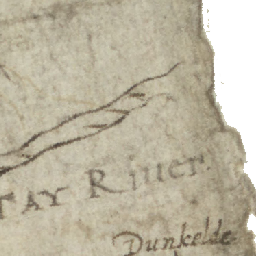 TAY Riuer.
Dunkelde